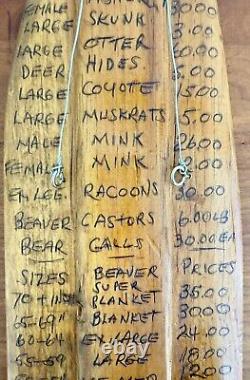 FEMALE FISHER 30.00
LARGE SKUNK 3.00
LARGE OTTER 60.00
DEER HIDES 5.00
LARGE COYOTE 15.00
LARGE MUSKRATS 5.00
MALE MINK 26.00
FEMALE MINK
EX LEG. RACOONS 30.00
BEAVER CASTORS 6.00LB
BEAR GALLS 30.00EA
SIZES BEAVER PRICES
70+ SUPER BLANKET 35.00
65-69" BLANKET 30.00
60-64 EX LARGE 24.00
55-59 LARGE 18.00
12.00
ebay